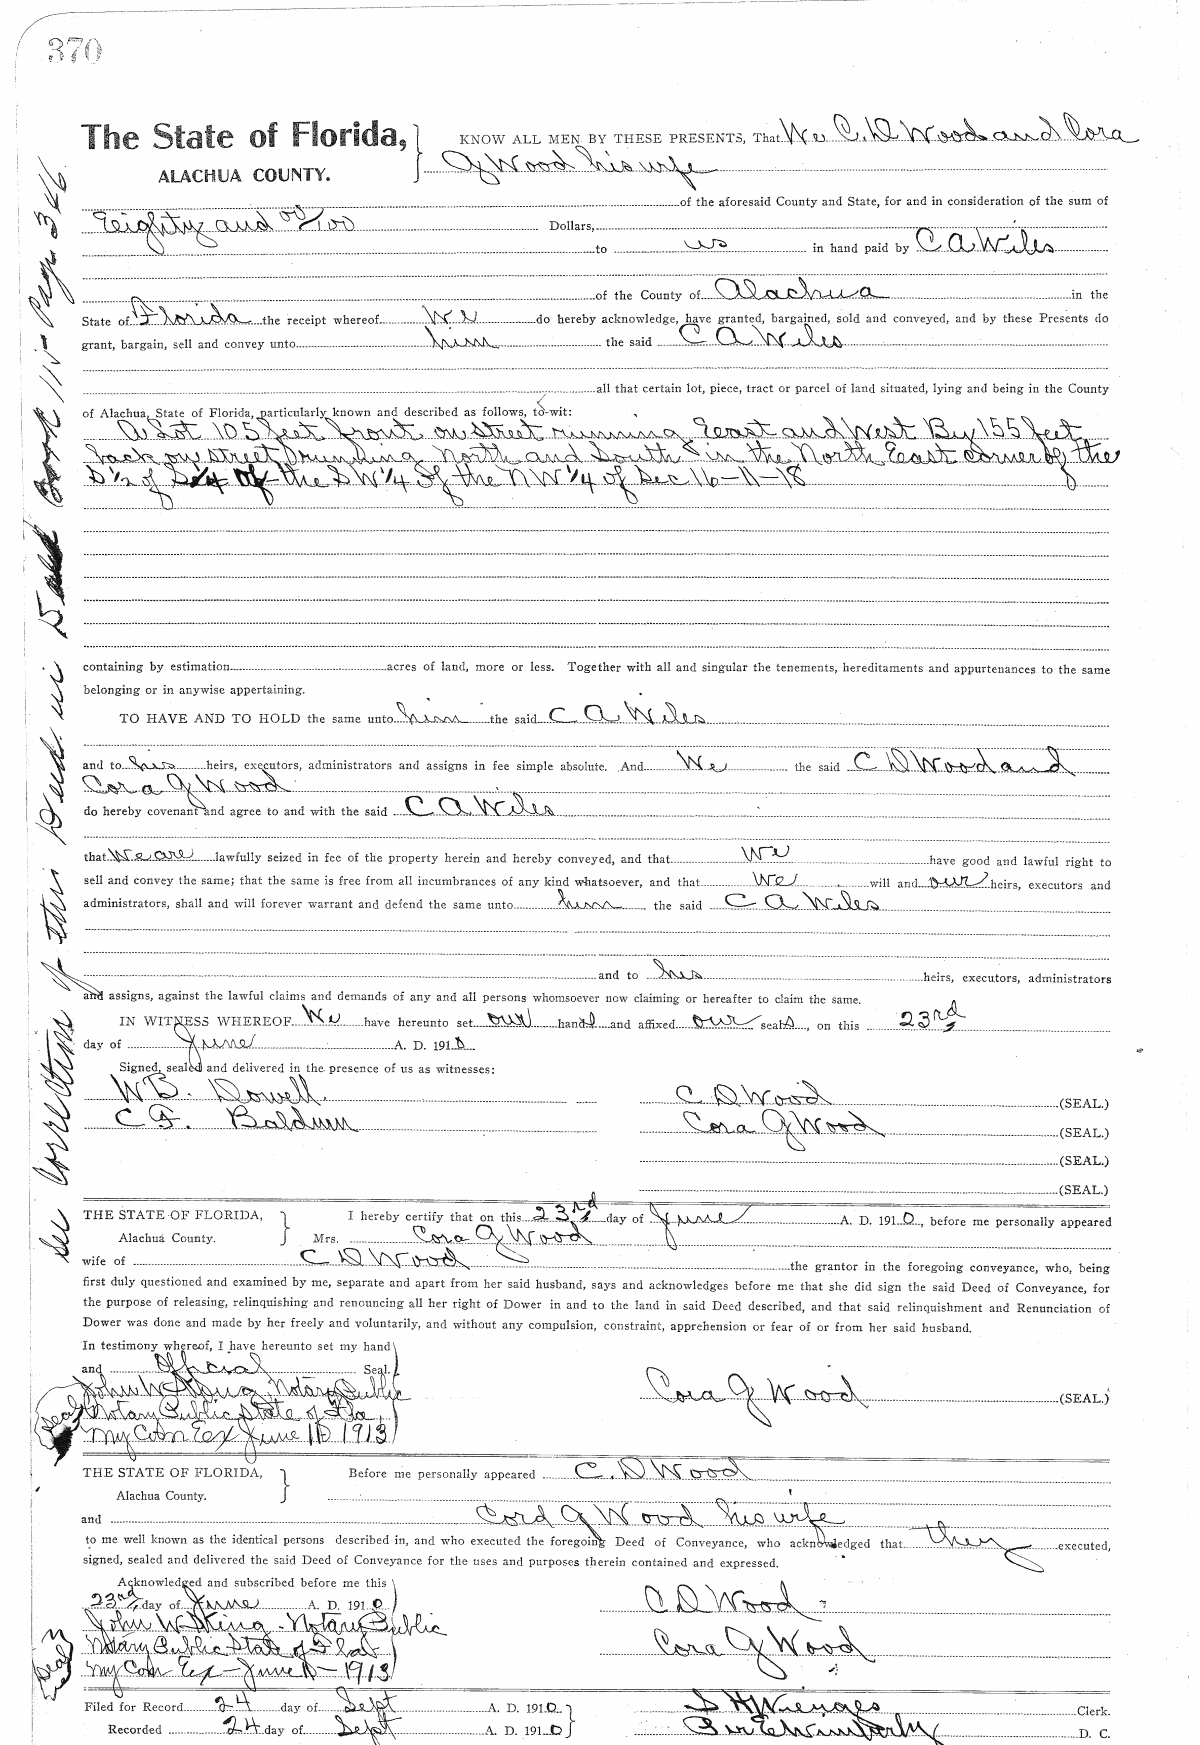 370
The State of Florida, KNOW ALL MEN BY THESE PRESENTS, That We C. D Wood and Cora
ALACHUA COUNTY. G Wood his wife
of the aforesaid County and State, for and in consideration of the sum of
Eighty and 00/100 Dollars,
to us in hand paid by C A Wiles
of the County of Alachua in the
State of Florida the receipt whereof We do hereby acknowledge, have granted, bargained, sold and conveyed, and by these Presents do
grant, bargain, sell and convey unto him the said C A Wiles
all that certain lot, piece, tract or parcel of land situated, lying and being in the County
of Alachua, State of Florida, particularly known and described as follows, to-wit:
A Lot 105 feet front on street running East and West By 155 feet
back on street running North and South in the North East corner of the
S 1/2 of SE 1/4 of the SW 1/4 of the NW 1/4 of Sec 16-11-18
containing by estimation acres of land, more or less. Together with all and singular the tenements, hereditaments and appurtenances to the same
belonging or in anywise appertaining.
TO HAVE AND TO HOLD the same unto him the said C A Wiles
and to his heirs, executors, administrators and assigns in fee simple absolute. And We the said C D Wood and
Cora G Wood
do hereby covenant and agree to and with the said C A Wiles
that We are lawfully seized in fee of the property herein and hereby conveyed, and that We have good and lawful right to
sell and convey the same; that the same is free from all incumbrances of any kind whatsoever, and that We will and our heirs, executors and
administrators, shall and will forever warrant and defend the same unto him the said C A Wiles
and to his heirs, executors, administrators
and assigns, against the lawful claims and demands of any and all persons whomsoever now claiming or hereafter to claim the same.
IN WITNESS WHEREOF We have hereunto set our hand and affixed our seals, on this 23rd
day of June A. D. 1910
Signed, sealed and delivered in the presence of us as witnesses:
W B. Dowell. C D Wood (SEAL.)
C F. Baldwin Cora G Wood (SEAL.)
(SEAL.)
(SEAL.)
THE STATE OF FLORIDA, I hereby certify that on this 23rd day of June A. D. 1910, before me personally appeared
Alachua County. Mrs. Cora G Wood
wife of C D Wood the grantor in the foregoing conveyance, who, being
first duly questioned and examined by me, separate and apart from her said husband, says and acknowledges before me that she did sign the said Deed of Conveyance, for
the purpose of releasing, relinquishing and renouncing all her right of Dower in and to the land in said Deed described, and that said relinquishment and Renunciation of
Dower was done and made by her freely and voluntarily, and without any compulsion, constraint, apprehension or fear of or from her said husband.
In testimony whereof, I have hereunto set my hand
and Official Seal.
John W Notary Public Cora G Wood (SEAL.)
Seal Notary Public State of Fla
My Com Ex June 1913
THE STATE OF FLORIDA, Before me personally appeared C. D Wood
Alachua County.
and Cord G Wood his wife
to me well known as the identical persons described in, and who executed the foregoing Deed of Conveyance, who acknowledged that they executed,
signed, sealed and delivered the said Deed of Conveyance for the uses and purposes therein contained and expressed.
Acknowledged and subscribed before me this
23rd day of June A. D. 1910 C D Wood
John W Notary Public
Seal Notary Public State of Fla Cora G Wood
My Com Ex - June - 1913
Filed for Record 24 day of Sept A. D. 1910 S H Wienges Clerk.
Recorded 24 day of Sept A. D. 1910 D. C.
See Correction of this Deed in Deed Book Page 346